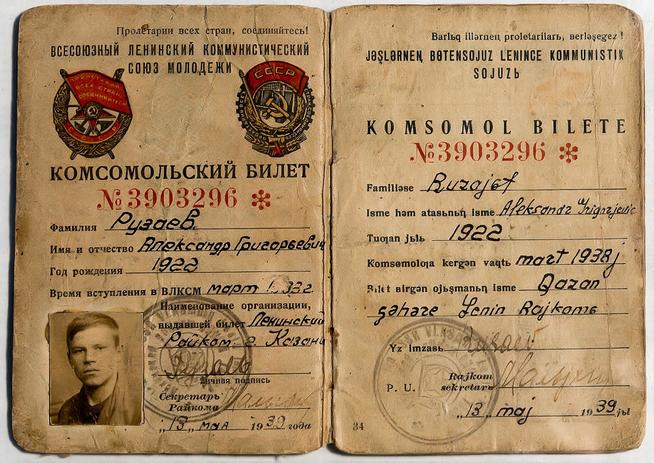 Пролетарии всех стран, соединяйтесь!
ВСЕСОЮЗНЫЙ ЛЕНИНСКИЙ КОММУНИСТИЧЕСКИЙ
СОЮЗ МОЛОДЕЖИ
СССР
КОМСОМОЛЬСКИЙ БИЛЕТ
№3903296 ✻
Фамилия Рузаев
Имя и отчество Александр Григорьевич
Год рождения 1922
Время вступления в ВЛКСМ март 1938 г
Наименование организации,
выдавшей билет Ленинский
Райком г. Казани
Рузаев
личная подпись
Секретарь
Райкома
„13" мая 1939 года
Barlьq illərnen proletariları, berləşegez!
JƏŞLƏRNEꞐ BƏTENSOJUZ LENINCE KOMMUNISTIK
SOJUZЬ
KOMSOMOL BILETE
№3903296 ✻
Familiəse Ruzajef
Isme həm atasьnьꞑ isme Aleksandr
Tuƣan jьlь 1922
Komsomolƣa kergən vaqtь mart 1938 j
Bilet birgən ojьşmanьꞑ isme Qazan
şəhəre Lenin Rajkomь
Yz imzasь Рузаев
P. U.
Rajkom
sekretare
„13" maj 1939 jьl
34